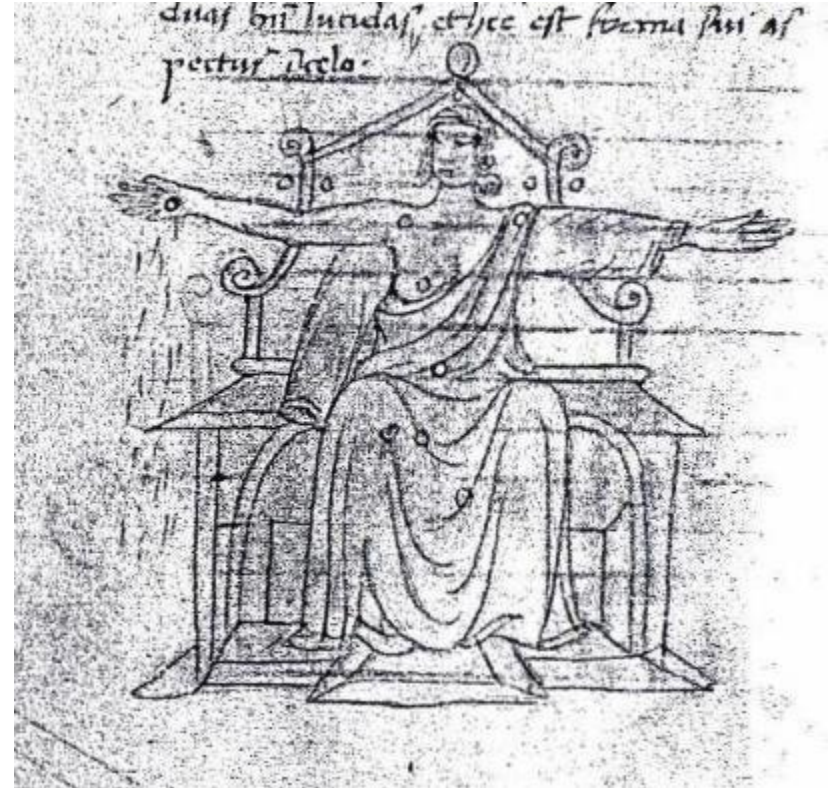 duas hñt lucidas, et hec est forma sui as
pectus ĩ celo.